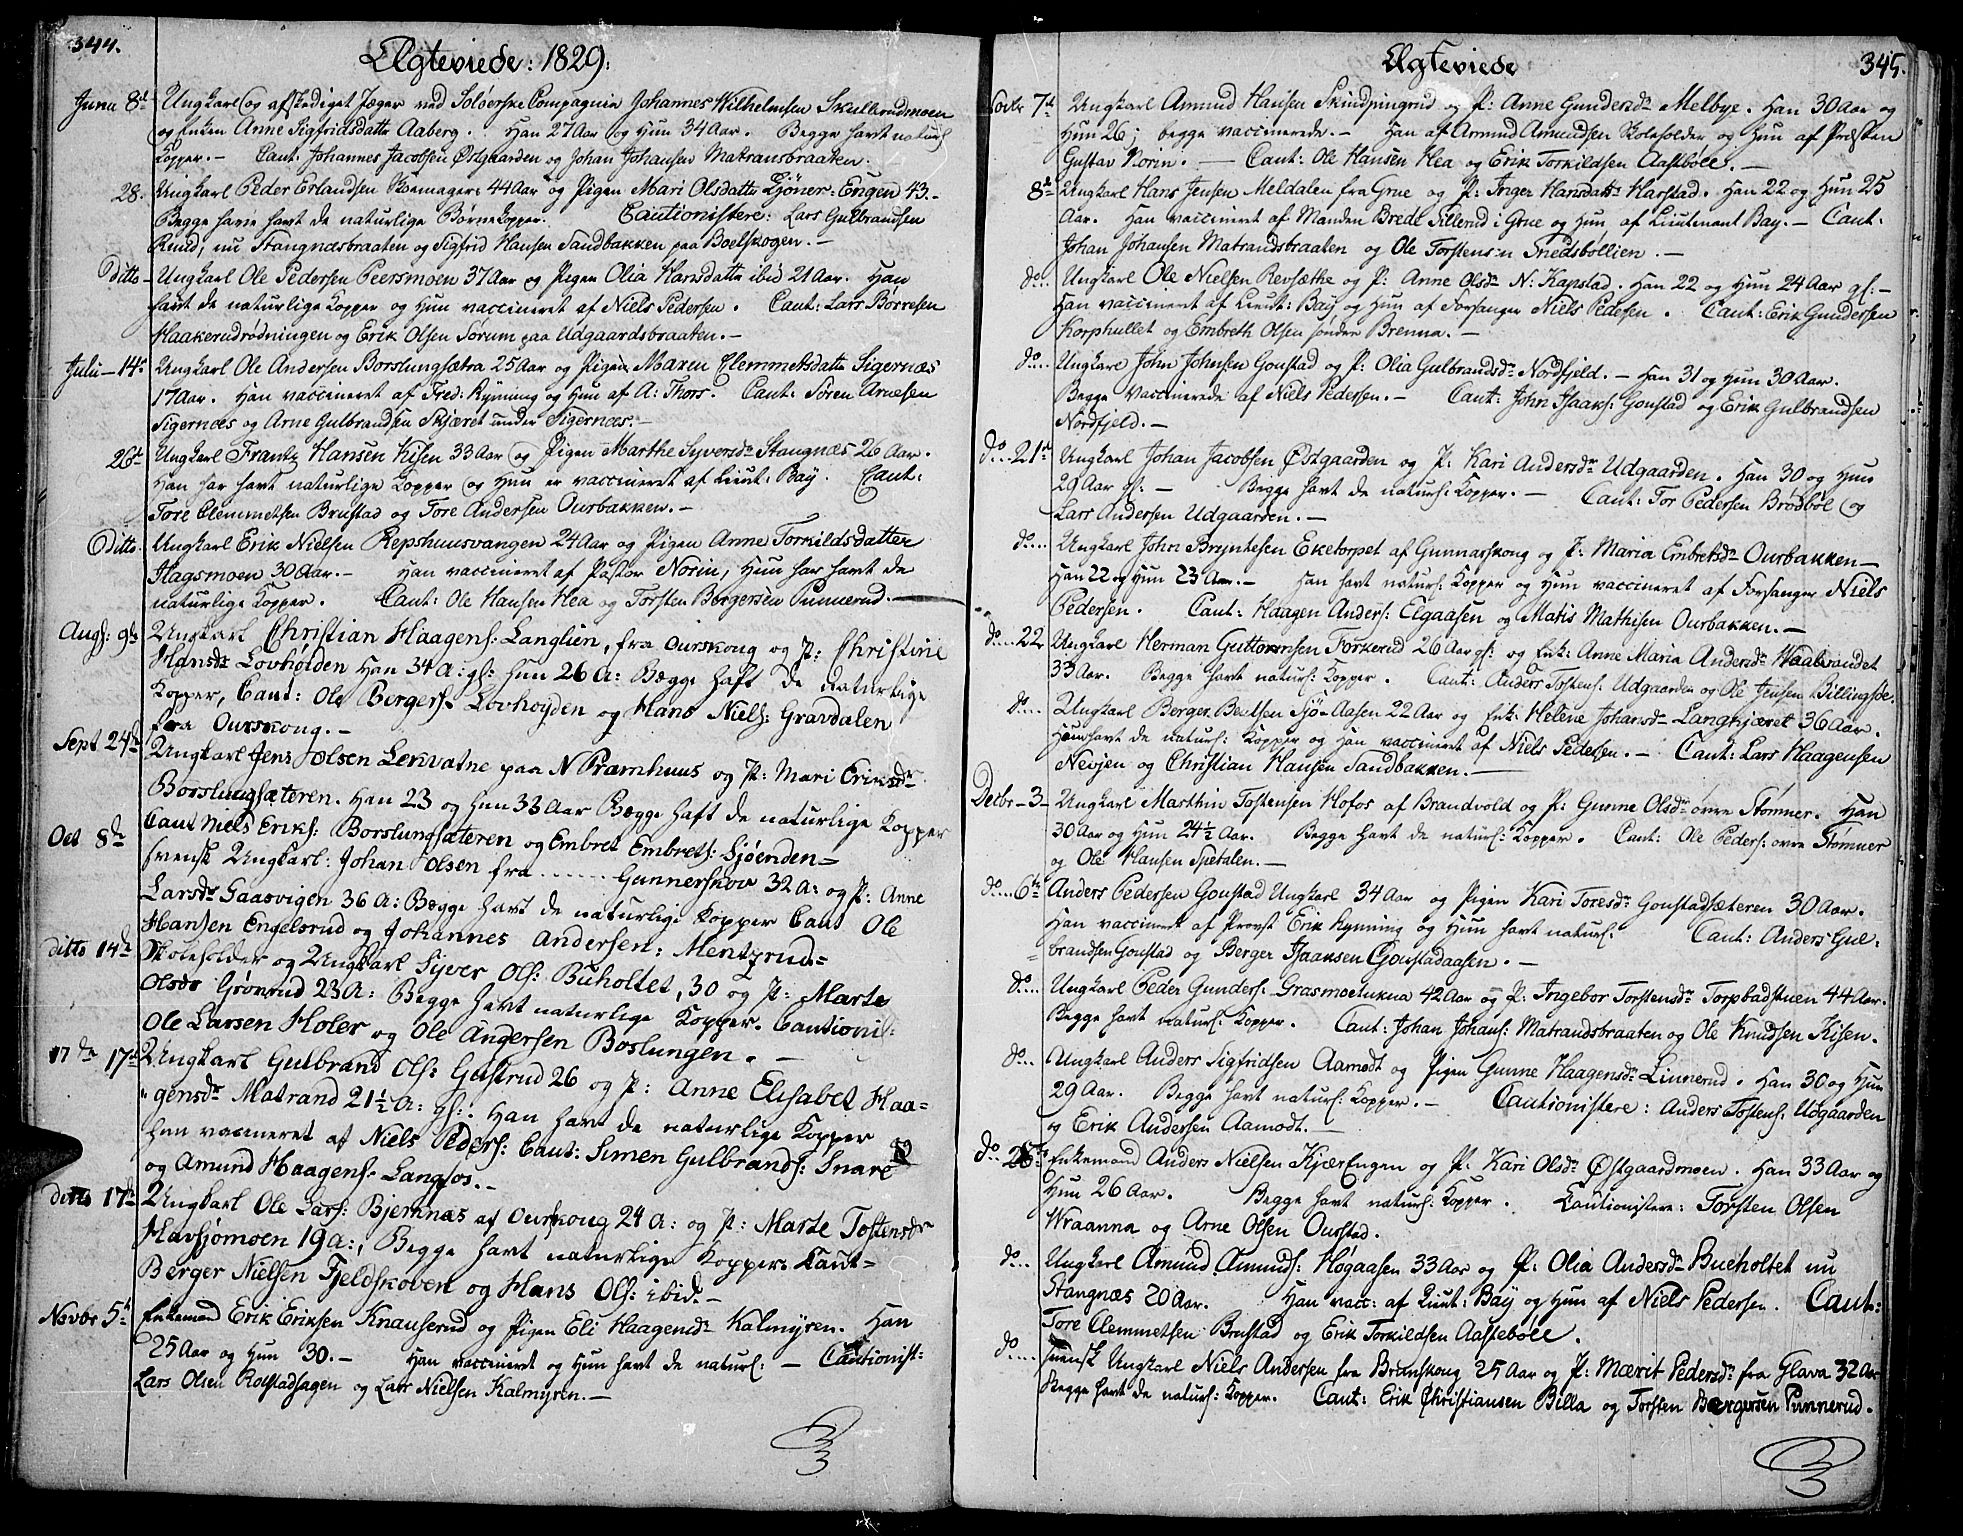 344.
Ægteviede: 1829:
Junii 8d Ungkarl og afskediget Jæger ved Soløerske Compagnie Johannes Wilhelmsen Skulbrudmoen
og Enken Anne Sigfridsdatter Aaberg. Han 27 Aar og Hun 34 Aar. Begge havt naturl
Kopper.— Caut: Johannes Jacobsen Østgaarden og Johan Johansen Matransbraaten.
28. Ungkarl Peder Erlandsen Skoemager 44 Aar og Pigen Mari Olsdatter Tjöner: Engen 43.—
Begge have havt de naturlige Børnekopper. Cautionistere: Lars Gulbrandsen
Ruud, nu Stangnæsbraaten og Sigfrid Hansen Sandbakken paa Boelskogen.—
Ditto— Ungkarl Ole Pedersen Peersmoen 37 Aar og Pigen Olia Hansdatter ibid 21 Aar. Han
havt de naturlige Kopper og Hun vaccineret af Niels Pedersen. Caut: Lars Börresen
Haakerudrødningen og Erik Olsen Sørum paa Udgaardsbraaten.—
Julii—14de Ungkarl Ole Andersen Borslungsætra 25 Aar og Pigen Maren Clemmetsdatter Sigernæs
17 Aar. Han vaccineret af Fred: Rynning og Hun af A: Thors. Caut: Sören Arnesen
Sigernæs og Arne Gulbrandsen Skjæret under Sigernæs.—
26de Ungkarl Frantz Hansen Kisen 33 Aar og Pigen Marthe Syversdr Stangnæs 26 Aar.
Han har havt naturlige Kopper og Hun er vaccineret af Lieut: Bay. Caut:
Tore Clemmetsen Brustad og Tore Andersen Ourbakken.—
Ditto. Ungkarl Erik Nielsen Repshuusvangen 24 Aar og Pigen Anne Torkildsdatter
Hagsmoen 30 Aar.— Han vaccineret af Pastor Norin, Hun har havt de
naturlige Kopper. Caut: Ole Hansen Hea og Torsten Borgersen Punnerud.—
Augs: 9de Ungkarl Christian Haagens: Langlien, fra Ourskoug og P: Christine
Hansdr Lovhøiden Han 34 A: gl: Hun 26 A: Begge haft de naturlige
Kopper, Caut: Ole Bergers: Lovhoyden og Hans Niels: Gravdalen
fra Ourskoug.—
Sept 24de Ungkarl Jens Olsen Lervatne paa N Pramhuus og P: Mari Eriksdr
Borslungsæteren. Han 23 og Hun 33 Aar Begge haft de naturlige Kopper
Caut Niels Eriks: Borslungsæteren og Embret Embrets: Sjøenden=
Oct 8de svensk Ungkarl: Johan Olsen fra ...... Gunnerskow 32 A: og P: Anne
Larsdr Gaasvigen 36 A: Begge havt de naturlige Kopper Caut Ole
Hansen Engelsrud og Johannes Andersen: Mentzrud=
ditto 14de Skoleholder og Ungkarl Syver Ols: Buholtet, 30 og P: Marte
Olsdr Grønrud 23 A: Begge havt naturlige Kopper. Cautionis:
Ole Larsen Holer og Ole Andersen Boslungen.—
17de 17de Ungkarl Gulbrand Ols: Gustrud 26 og P: Anne Elisabet Haa=
"gensdr Matrand 21½ A: gl: Han havt de naturlige Kopper
hun vaccineret af Niels Peders: Caut: Simen Gulbrands: Snare
og Amund Haagens: Langfos.—
ditto 17de Ungkarl Ole Lars: Bjernnæs af Ourskoug 24 A: og P: Marte Tostensdr
Havsjømoen 19 A:, Begge havt naturlige Kopper: Caut=
Berger Nielsen Fjeldskoven og Hans Ols: ibid.—
Novbr 5te Enkemand Erik Eriksen Knauserud og Pigen Eli Haagensdr Kalmyren. Han
25 Aar og Hun 30.— Han vaccineret og Hun havt de naturl:— Cautionist:
Lars Olsen Rolstadsagen og Lars Nielsen Kalmyren.—
Ægteviede
345.
Novbr 7de Ungkarl Amund Hansen Skindpungrud og P: Anne Gundersdr Melbye. Han 30 Aar og
Hun 26; begge vaccinerede.— Han af Amund Amundsen Skoleholder og Hun af Præsten
Gustav Norin.— Caut: Ole Hansen Hea og Erik Torkildsen Aastböll.—
8de Ungkarl Hans Jensen Meldalen fra Grue og P: Inger Hansdatr Harstad. Han 22 og Hun 25
Aar. Han vaccineret af Manden Brede Sillerud i Grue og Hun af Lieutenant Bay.— Caut:
Johan Johansen Matrandsbraaten og Ole Torstens:n Snedsbollien.—
do.. Ungkarl Ole Nielsen Revsæthe og P: Anne Olsdr N: Kapstad. Han 22 og Hun 24 Aar gl:—
Han vaccineret af Lieut: Bay og Hun af Forsanger Niels Pedersen. Caut: Erik Gundersen
Korphullet og Embreth Olsen søndre Brenna.—
do... Ungkarl John Johnsen Goustad og P: Olia Gulbrandsdr Nordfjeld.— Han 31 og Hun 30 Aar.
Begge vaccinerede af Niels Pedersen.— Caut: John Isaaks: Goustad og Erik Gulbrandsen
Nordfjeld.—
do..21de Ungkarl Johan Jacobsen Østgaarden og P: Kari Andersdr Udgaarden. Han 30 og Hun
20 Aar gl:— Begge havt de naturl: Kopper.— Caut: Tor Pedersen Brødböl og
Lars Andersen Udgaarden.—
do... Ungkarl John Bryntesen Eketorpet af Gunnarskoug og P: Maria Embretsdr Ourbakken—
Han 22 og Hun 23 Aar.— Han havt naturl: Kopper og Hun vaccineret af Forsanger Niels
Pedersen. Caut: Haagen Anders: Elgaasen og Matis Mathisen Ourbakken.—
do...22 Ungkarl Herman Guttormsen Forkerud 26 Aar gl: og Enk: Anne Maria Andersdr Waalsrandet
33 Aar. Begge havt naturl: Kopper. Caut: Anders Tostens: Udgaarden og Ole Jensen Billingsøe.
do... Ungkarl Berger Bentsen Sjö-Aasen 22 Aar og Enk: Helene Johansdr Langkjæret 36 Aar.
Hun havt de naturl: Kopper og Han vaccineret af Niels Pedersen.— Caut: Lars Haagensen
Nevjen og Christian Hansen Sandbakken.—
Decbr—3— Ungkarl Marthin Tostensen Hofos af Brandvold og P: Gunne Olsdr øvre Stømner. Han
30 Aar og Hun 24½ Aar. Begge havt de naturl: Kopper. Caut: Ole Peders: øvre Stømner
og Ole Hansen Spetalen.—
do...6te Anders Pedersen Goustad Ungkarl 34 Aar og Pigen Kari Toresdr Goustadsæteren 30 Aar.
Han vaccineret af Provst Erik Rynning og Hun havt naturl: Caut: Anders Gul:
brandsen Goustad og Berger Isaaksen Goustadaasen.—
do... Ungkarl Peder Gunders: Grasmoetukna 42 Aar og P: Ingebor Torstensdr Torpbadstuen 44 Aar.
Begge havt naturl: Kopper. Caut: Johan Johans: Matrandsbraaten og Ole Knudsen Kisen.
do... Ungkarl Anders Sigfridsen Aamodt og Pigen Gunne Haagensdr Linnerud. Han 30 og Hun
29 Aar. Begge havt naturl: Kopper.— Cautionistere: Anders Tostens: Udgaarden
og Erik Andersen Aamodt.—
do..26de Enkemand Anders Nielsen KjærEngen og P: Kari Olsdr Østgaardmoen. Han 33 Aar og
Hun 26 Aar. Begge havt naturl: Kopper. Cautionistere: Torsten Olsen
Wraanna og Arne Olsen Ourstad.
do... Ungkarl Amund Amunds: Høgaasen 33 Aar og P: Olia Andersdr Bueholtet nu
Stangnæs 20 Aar. Han vacc: af Lieut: Bay og Hun af Niels Pedersen. Caut:
Tore Clemmetsen Brustad og Erik Torkildsen Aastebøll.
do.... Svensk Ungkarl Niels Andersen fra Brunskoug 25 Aar og P: Mærit Pedersdr fra Glava 32 Aar
Begge havt de naturl: Kopper. Caut: Erik Christiansen Billa og Torsten Borgersen Punnerud.